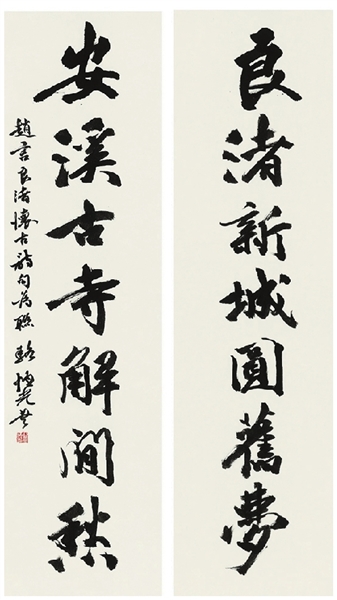 良渚新城圓舊夢
安溪古寺解閒愁
趙言良渚懷古詩句為聯 駱恒光書